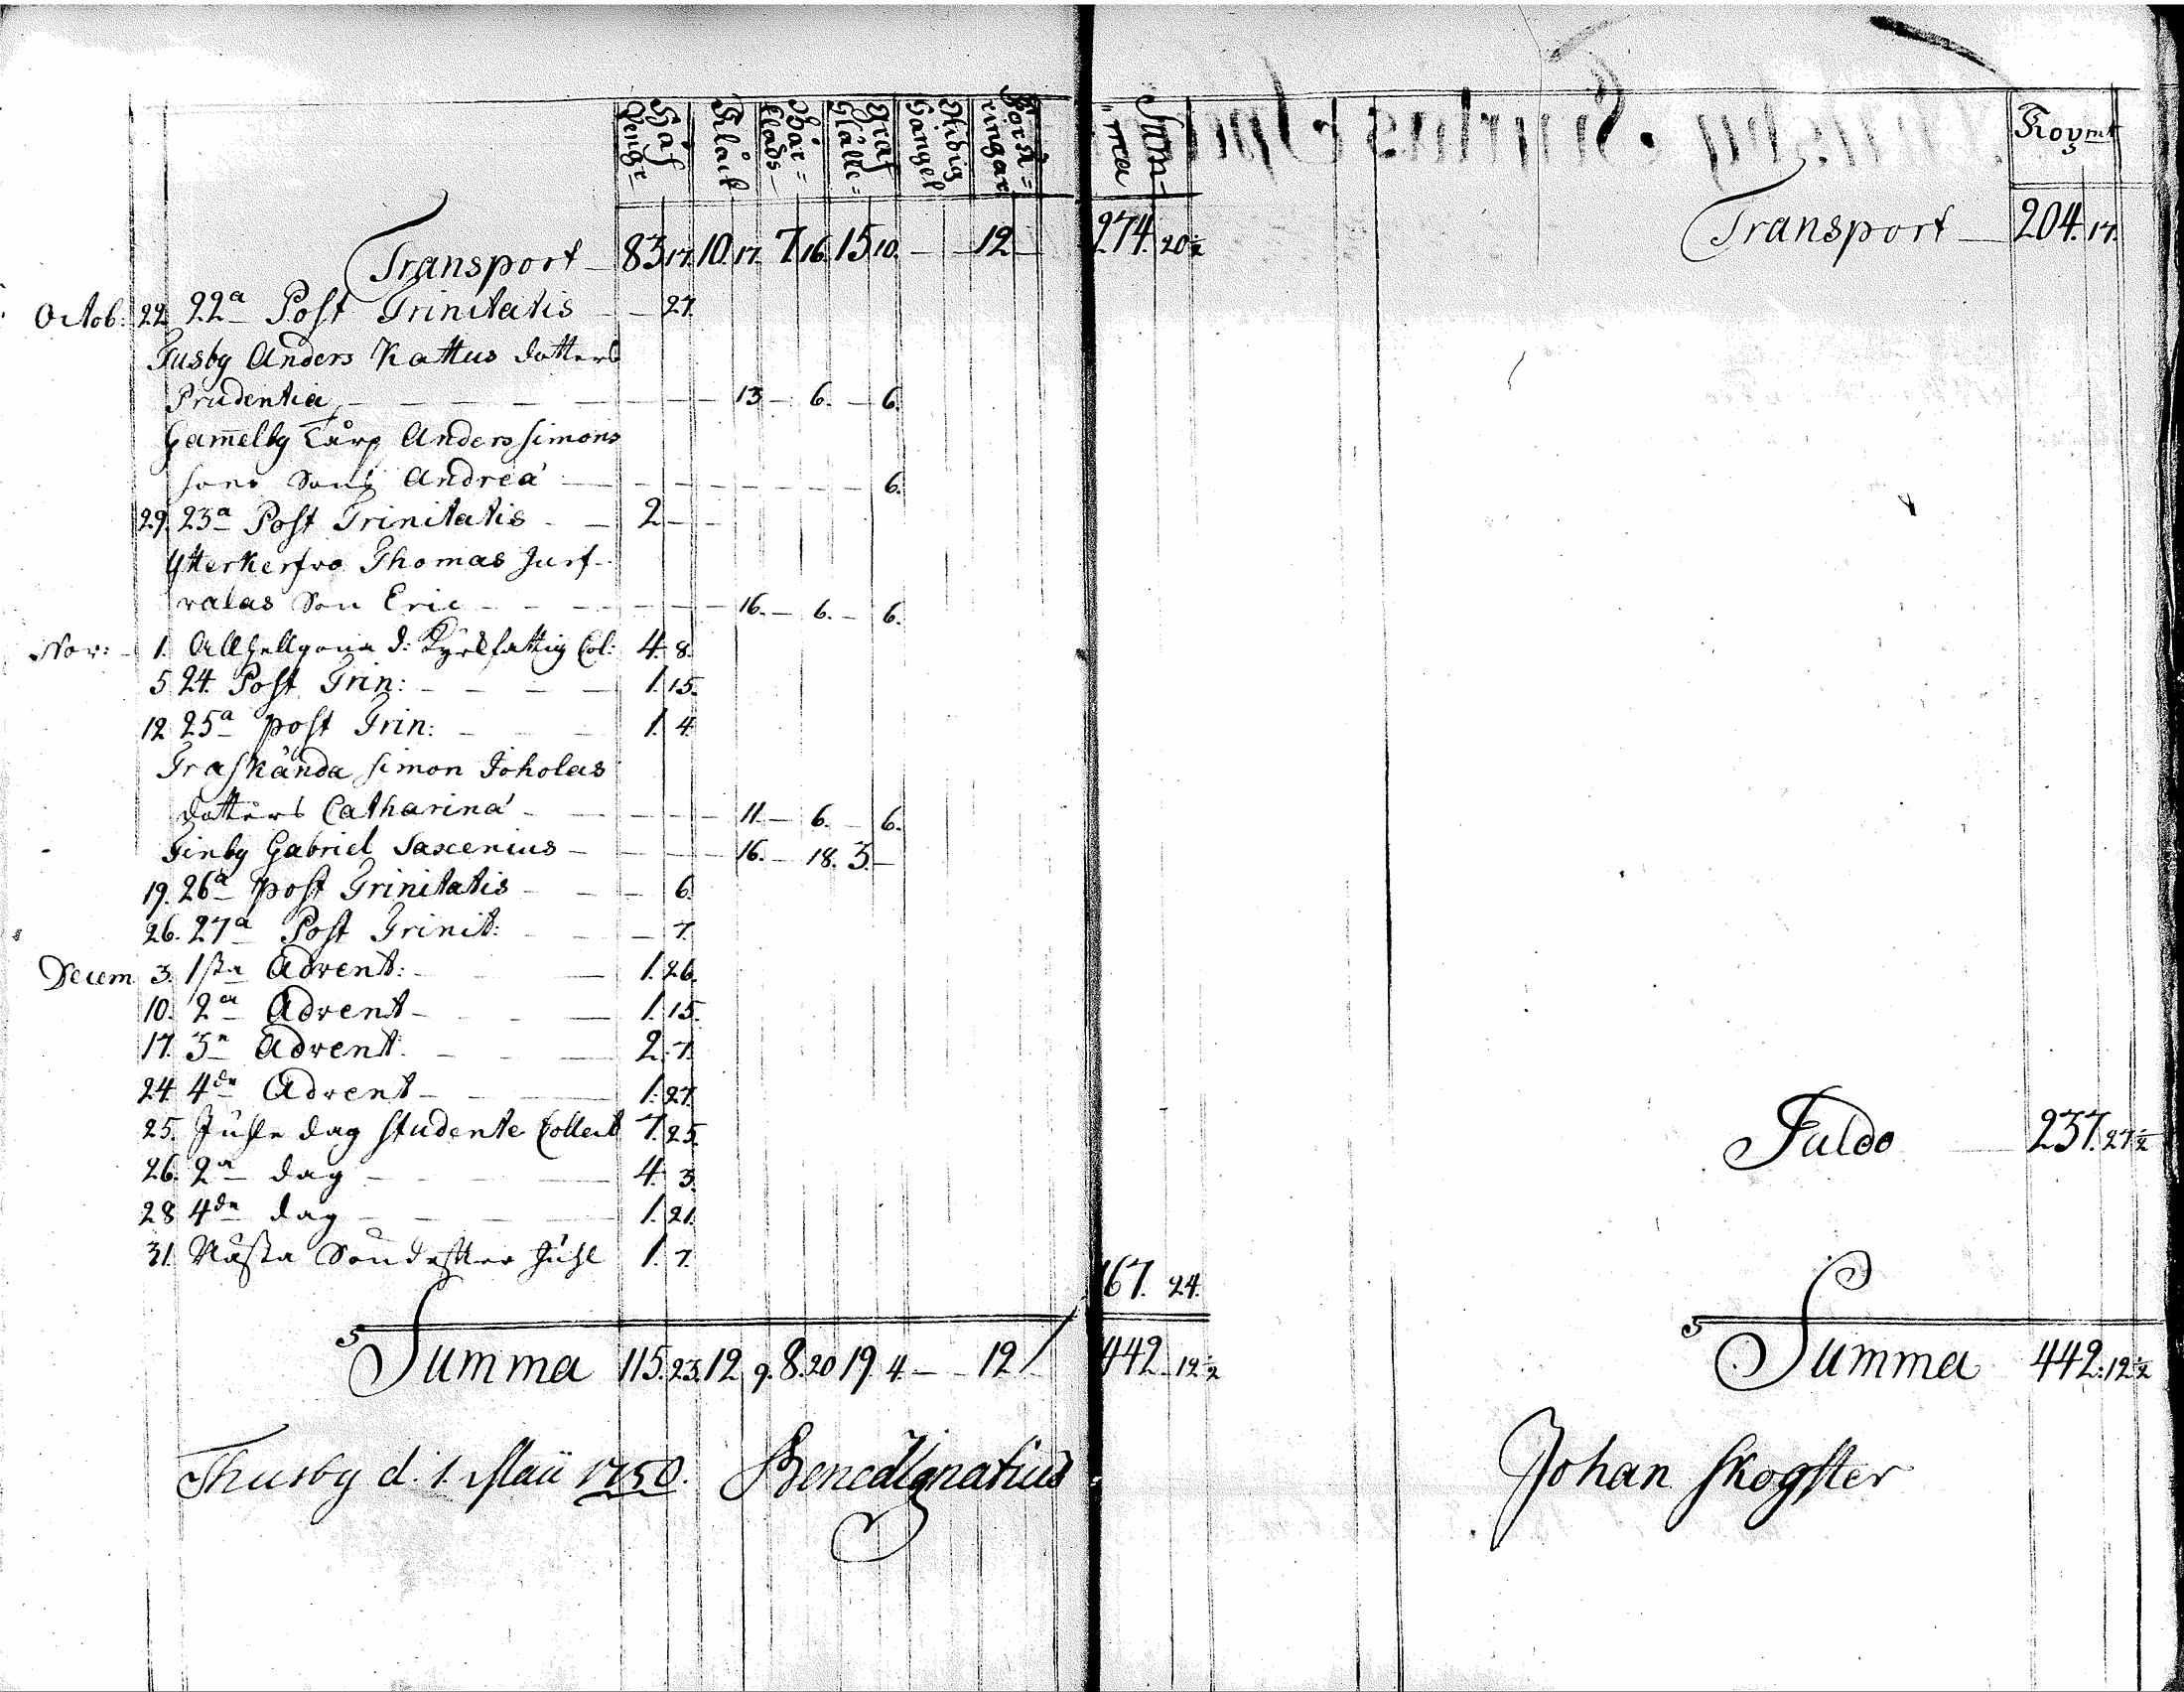 Håf Peng:r
Klåck
Bår= Klads
Graf Ställe=
Skidig Gångel
Förä= ringar
Sum= ma
Koy mt
Transport 83. 17. 10. 17. 7. 16. 15. 10. — — 12 — 274. 20½
Transport — 204. 17.
Octob: 22. 22a Post Trinitatis — — 27.
Tusby Anders Kattus dotters
Prudentia — — 13 — 6. — 6.
Gam̄elby Tårp Anders Simons
sons Sons Andrea — — 6.
29. 23a Post Trinitatis — 2 — —
Ytterkerfvo Thomas Jurf-
valas Son Eric — — 16. — 6. — 6.
Nov: 1. Allhellgona d: Kyrk fattig Col: 4. 8.
5. 24. Post Trin: — — 1. 15.
12. 25a post Trin: — — 1. 4.
Traskända Simon Joholas
dotters Catharina — — 11. — 6. — 6.
Finby Gabriel Saxenius — — 16. — 18. 3. —
19. 26a post Trinitatis — — 6.
26. 27a Post Trinit: — — 7.
Decem 3. 1sta Advent: — 1. 26.
10. 2a Advent — — 1. 15.
17. 3a Advent. — — 2. 7.
24. 4de Advent — — 1. 27.
25. Juhle dag studente Collect 7. 25.
26. 2a dag — — 4. 3.
28. 4de dag — — 1. 21.
31. Nästa Sönd. efter Juhl 1. 7.
Saldo — 237. 27½
167. 24.
Summa 115. 23. 12. 9. 8. 20 19. 4. — — 12 / 442. 12½
Summa 442. 12½
Thusby d. 1. Maii 1750. Bened Ignatius
Johan Skogster